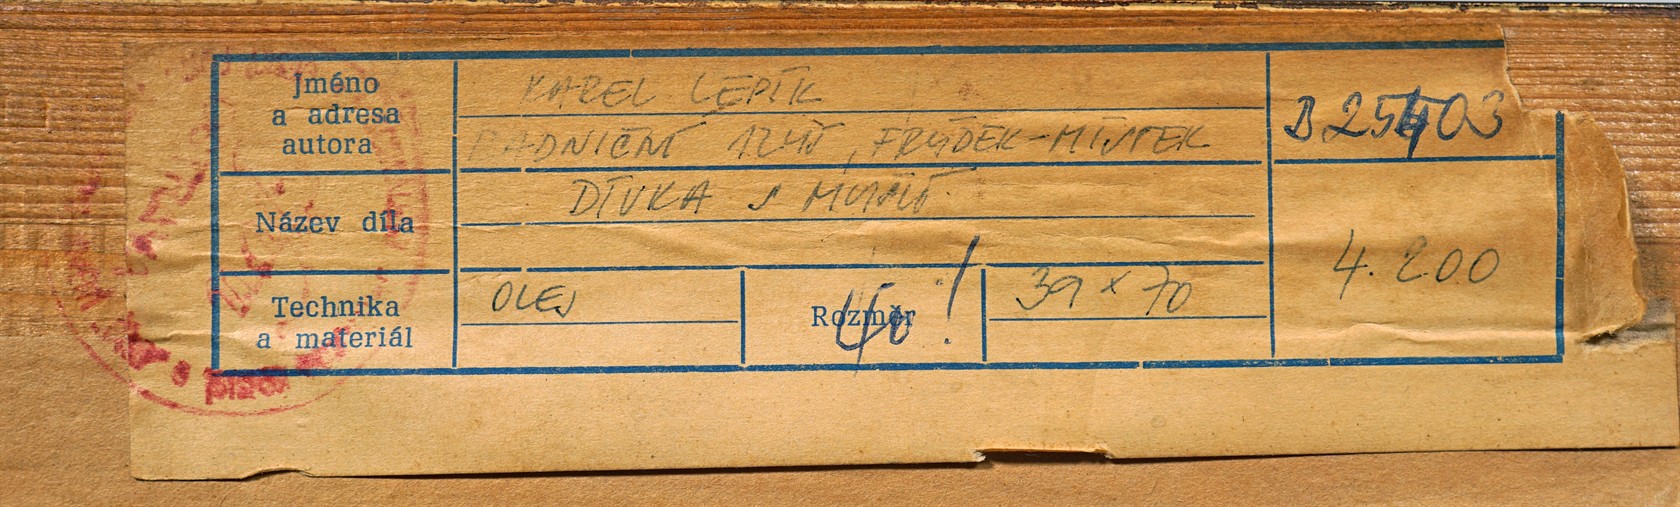 Jméno
a adresa
autora
KAREL LEPÍK
RADNIČNÍ 1245, FRÝDEK-MÍSTEK
B 25403
Název díla
DÍVKA S MUŠLÍ
4.200
Technika
a materiál
OLEJ
Rozměr
40!
39 x 70